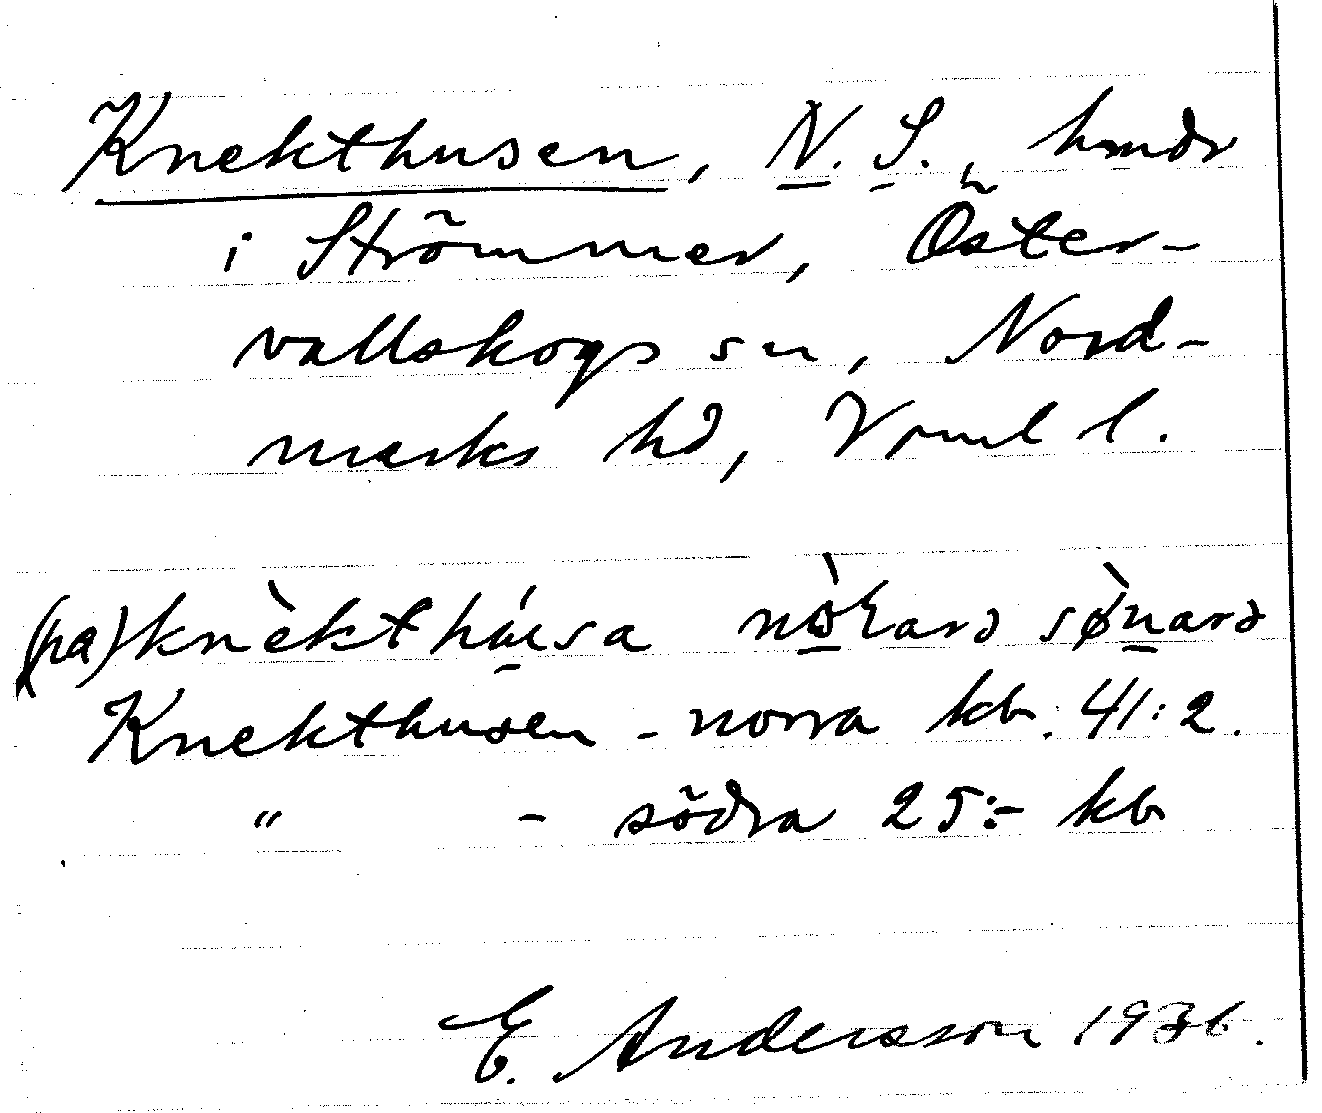 Knekthusen, N. S., hmdr
i Strömmer, Öster-
vallskogs sn, Nord-
marks hd, Vrml l.
(pa) knèkthúsa
Knekthusen - norra kb. 41:2.
" - södra 25:- kb
E. Andersson 1936.